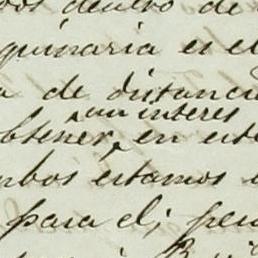 dentro de
quinaria es el
de distancia
aun interes
obtener en este
ambos estamos
para el; pero